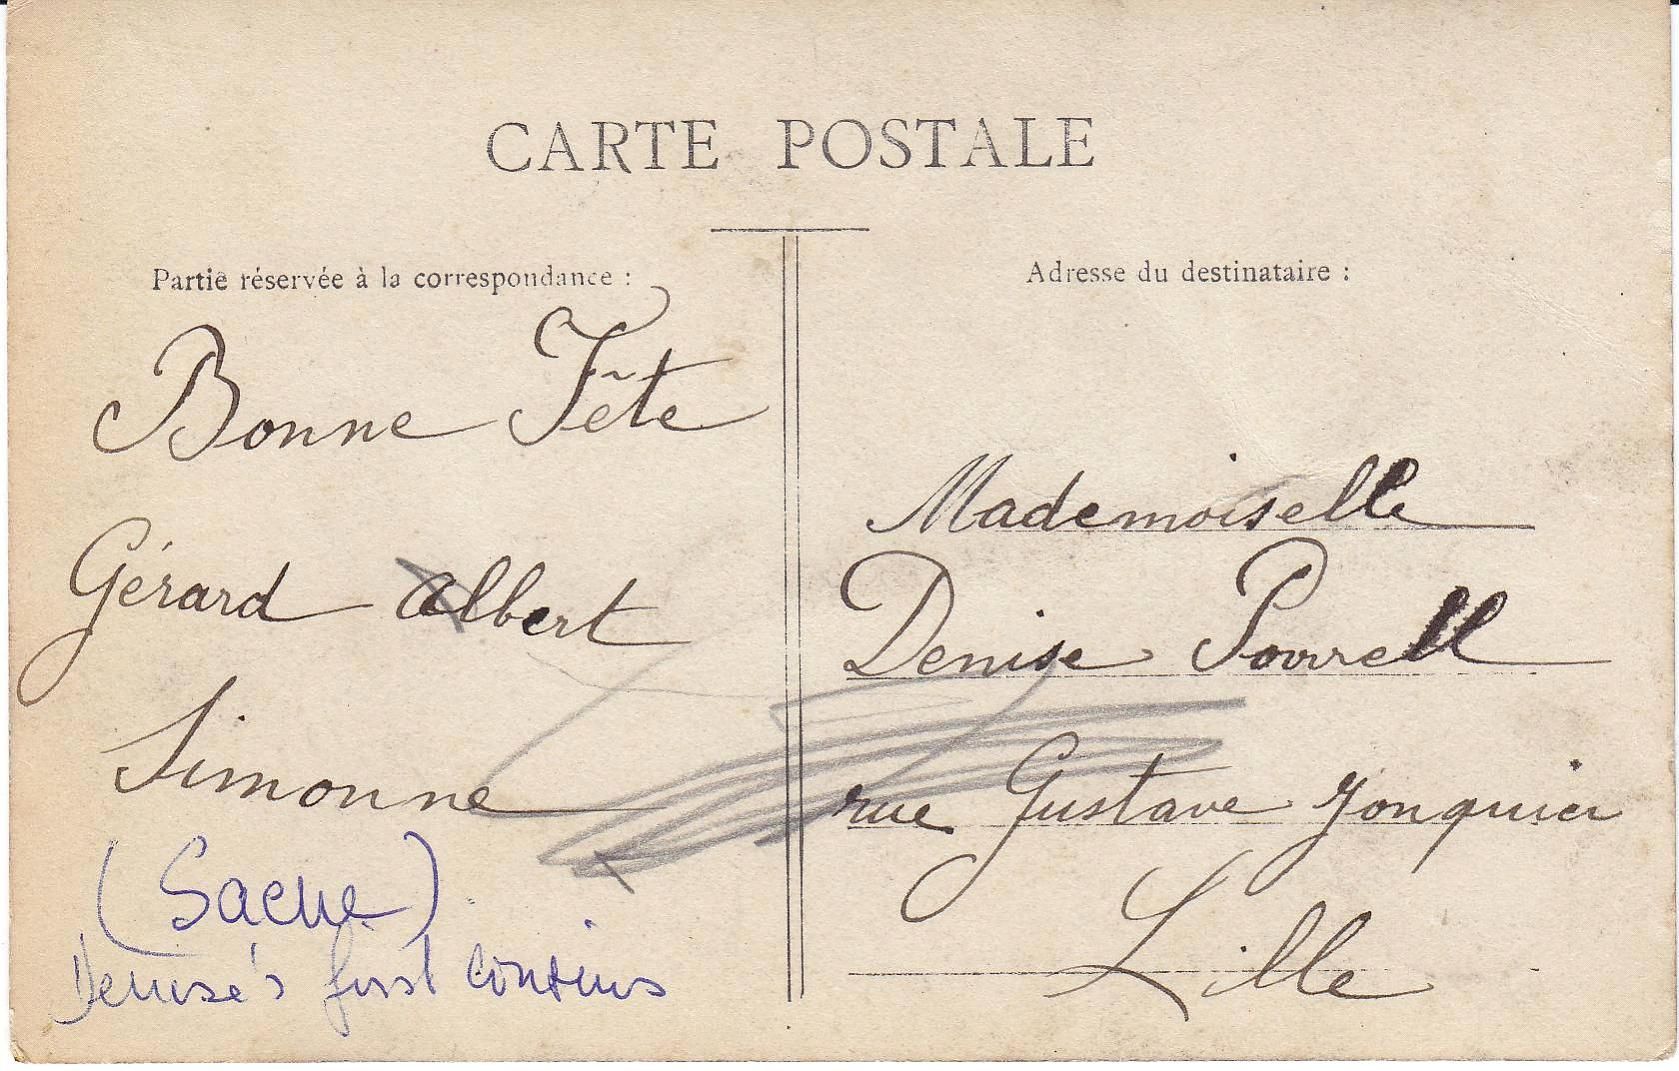 CARTE POSTALE
Partie réservée à la correspondance :
Bonne Fête
Gérard Albert
Simonne
(Sache)
Denise's first cousins
Adresse du destinataire :
Mademoiselle
Denise Pourrell
rue Gustave Jonquier
Lille